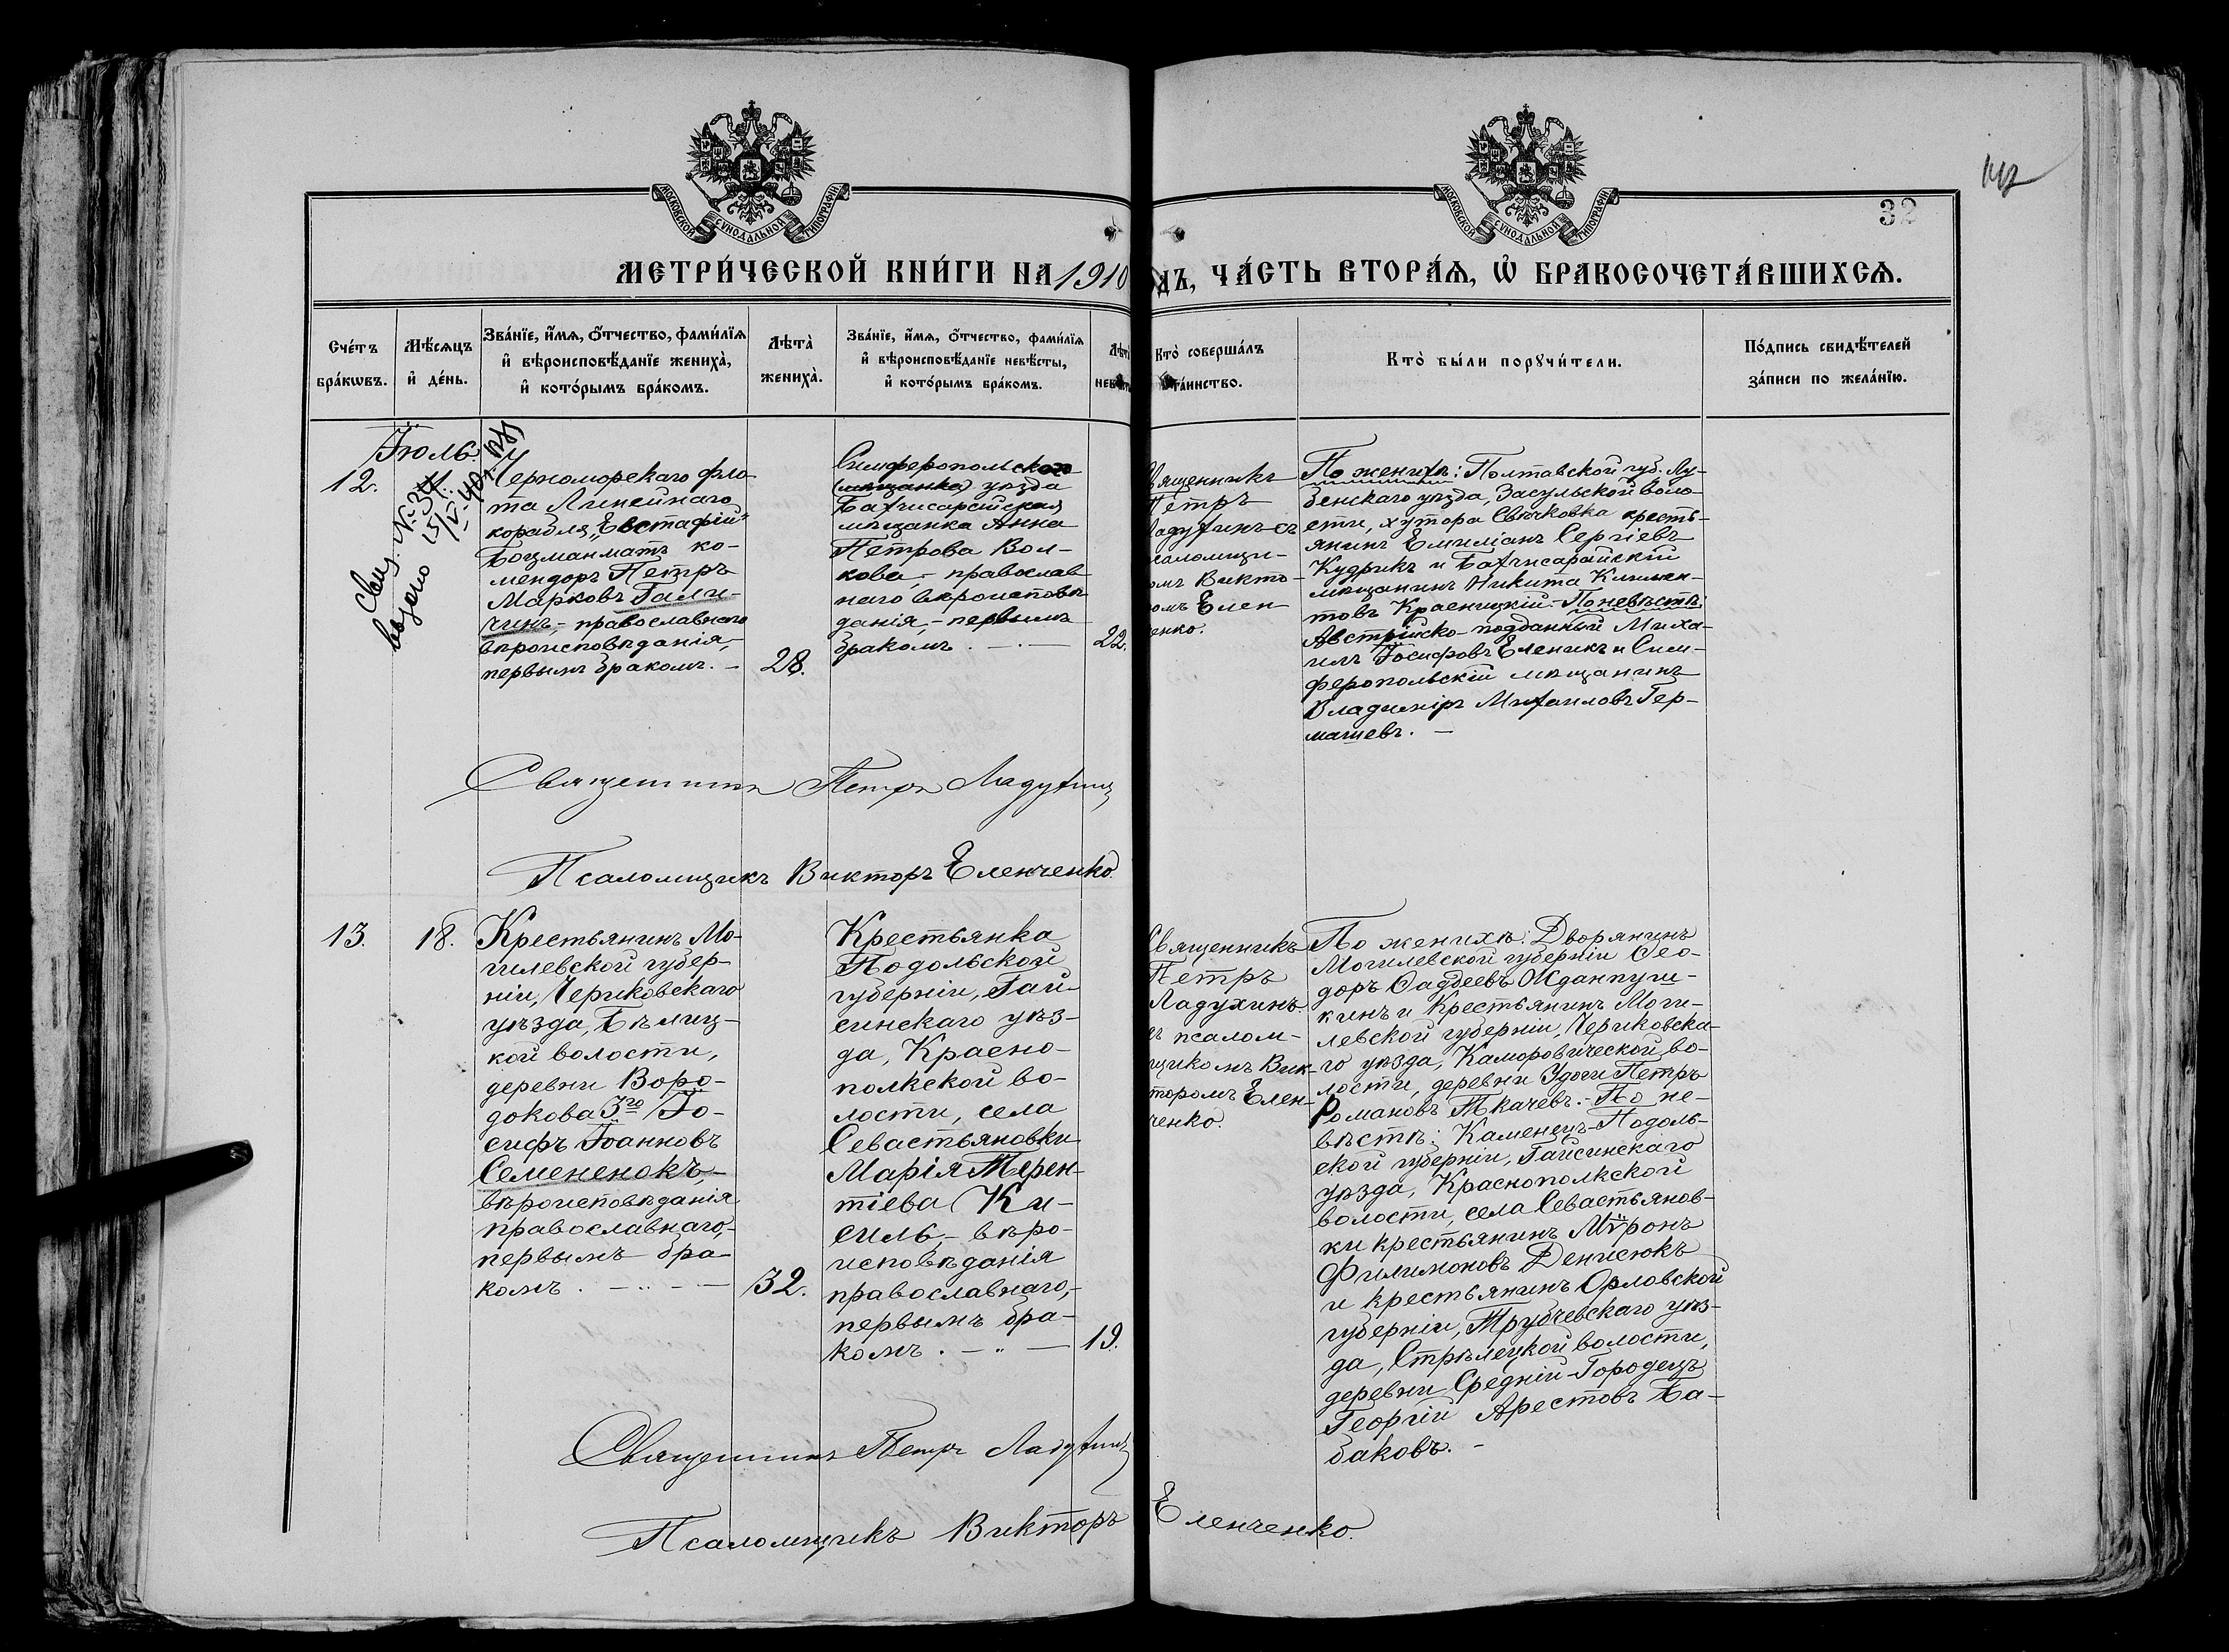 МОСКОВСКОЙ СУНОДАЛЬНОЙ ТИПОГРАФІИ
МОСКОВСКОЙ СУНОДАЛЬНОЙ ТИПОГРАФІИ
32
МЕТРИ́ЧЕСКОЙ КНИ́ГИ НА 1910
дъ, ЧА́СТЬ ВТОРА́Ѧ, Ѡ҆ БРАКОСОЧЕТА́ВШИХСѦ.
Сче́тъ
бра́кѡвъ.
Мѣ́сѧцъ
и҆ де́нь.
Зва́нїе, и҆́мѧ, о҆́тчество, фами́лїѧ
и҆ вѣроисповѣ́данїе жениха̀,
и҆ кото́рымъ бра́комъ.
Лѣта̀
жениха̀.
Зва́нїе, и҆́мѧ, о҆́тчество, фами́лїѧ
и҆ вѣроисповѣ́данїе невѣ́сты,
и҆ кото́рымъ бра́комъ.
Лѣта̀
невѣ́
Кто̀ соверша́лъ
та́инство.
Кто̀ бы́ли порꙋчи́тели.
По́дпись свидѣ́телей
за́писи по жела́нїю.
Іюль.
12.
Свид. № 34
выдано 15/V-40г.
Черноморскаго фло-
та Линейнаго
корабля „Евстафій“
Боцманматъ ко-
мендоръ Петръ
Марковъ Гали-
чинъ,- православнаго
вѣроисповѣданія,
первымъ бракомъ. -
28.
Симферопольской
(мѣщанка) уѣзда
Бахчисарайская
мѣщанка Анна
Петрова Вол-
кова - православ-
наго вѣроисповѣ-
данія, - первымъ
бракомъ. - . -
22.
Священникъ
Петръ
Ладухинъ съ
псаломщи-
омъ Викто-
омъ Елен-
енко.
По женихѣ: Полтавской губ. Лу-
бенскаго уѣзда, Засульской воло-
сти, хутора Свѣчковка кресть-
янинъ Емиліанъ Сергіевъ
Кудрикъ и Бахчисарайскій
мѣщанинъ Никита Климен-
товъ Красницкій.- По невѣстѣ:
Австрійско-подданный Миха-
илъ Іосифовъ Еленикъ и Сим-
феропольскій мѣщанинъ
Владиміръ Михаиловъ Гер-
машевъ. -
Священникъ Петръ Ладухинъ
Псаломщикъ Викторъ Еленченко.
13.
18.
Крестьянинъ Мо-
гилевской губер-
ніи, Чериковскаго
уѣзда, Бѣлиц-
кой волости,
деревни Воро-
докова 3го Іо-
сифъ Іоанновъ
Семененокъ,-
вѣроисповѣданія
православнаго,-
первымъ бра-
комъ. - .. - -
32.
Крестьянка
Подольской
губерніи, Гай-
синскаго уѣз-
да, Красно-
полкской во-
лости, села
Севастьяновки
Марія Терен-
тіева Ки-
силь,- вѣро-
исповѣданія
православнаго,-
первымъ бра-
комъ. - .. -
19.
Священникъ
Петръ
Ладухинъ
съ псалом-
щикомъ Вик-
торомъ Елен-
ченко.
По женихѣ: Дворянинъ
Могилевской губерніи Ѳео-
доръ Ѳаддеевъ Жданпуш-
кинъ и Крестьянинъ Моги-
левской губерніи, Чериковска-
го уѣзда, Каморовической во-
лости, деревни Удоги Петръ
Романовъ Ткачевъ.- По не-
вѣстѣ: Каменецъ-Подоль-
ской губерніи, Гайсинскаго
уѣзда, Краснополкской
волости, села Севастьянов-
ки крестьянинъ Мѵронъ
Филимоновъ Денисюкъ
и крестьянинъ Орловской
губерніи, Трубчевскаго уѣз-
да, Стрѣлецкой волости,
деревни Средній-Городецъ
Георгій Арестовъ Ба-
баковъ. -
Священникъ Петръ Ладухинъ
Псаломщикъ Викторъ Еленченко.